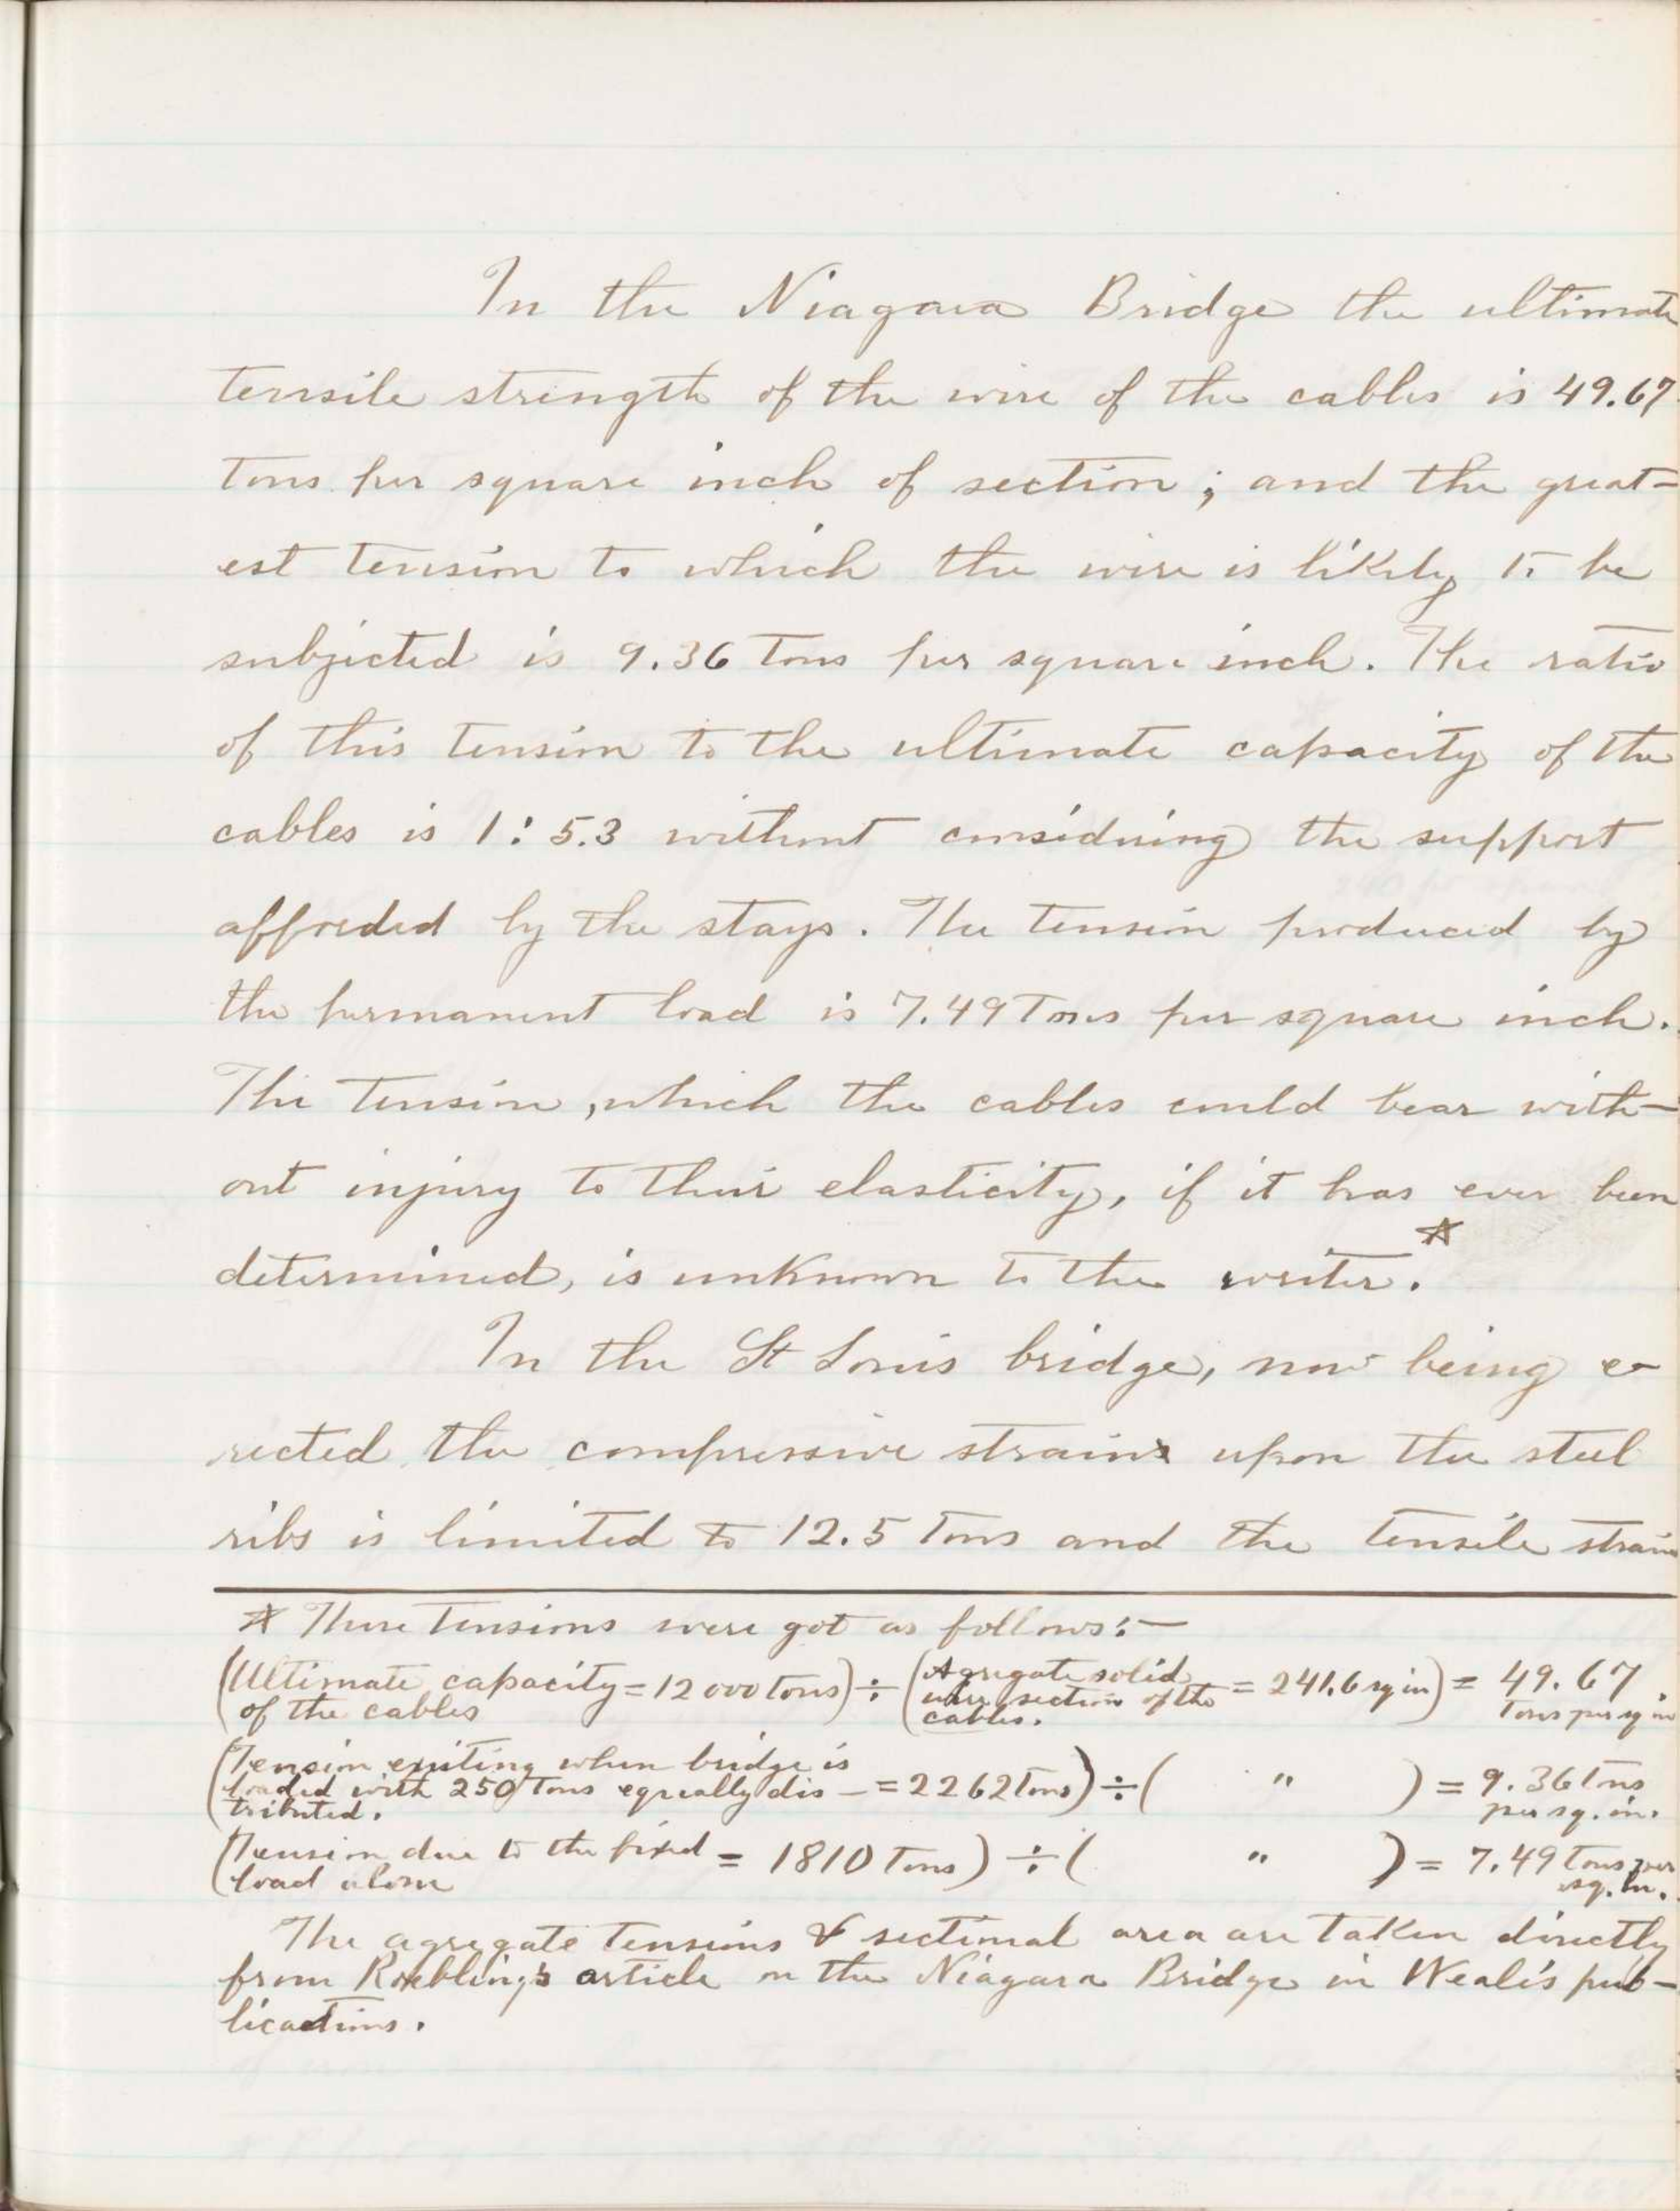 In the Niagara Bridge the ultimate
tensile strength of the wire of the cables is 49.67
tons per square inch of section; and the great=
est tension to which the wire is likely to be
subjected is 9.36 tons per square inch. The ratio
of this tension to the ultimate capacity of the
cables is 1:5.3 without considering the support
afforded by the stays. The tension produced by
the permanent load is 7.49 Tons per square inch.
The tension, which the cables could bear with-
out injury to their elasticity, if it has ever been
determined, is unknown to the writer.*
In the St Louis bridge, now being e-
rected the compressive strains upon the steel
ribs is limited to 12.5 Tons and the tensile strain
* These tensions were got as follows:-
(Ultimate capacity of the cables = 12000 tons) ÷ (Agregate solid wire section of the cables. = 241.6 sq in) = 49.67 Tons per sq in.
(Tension existing when bridge is loaded with 250 Tons equeally dis-tributed. = 2262 Tons) ÷ ( " ) = 9.36 tns per sq. in.
(Tension due to the fixed load alone = 1810 Tons) ÷ ( " ) = 7.49 Tons per sq. in.
The agregate tensions & sectional area are taken directly
from Roebling's article on the Niagara Bridge in Weale's pub-
lications.